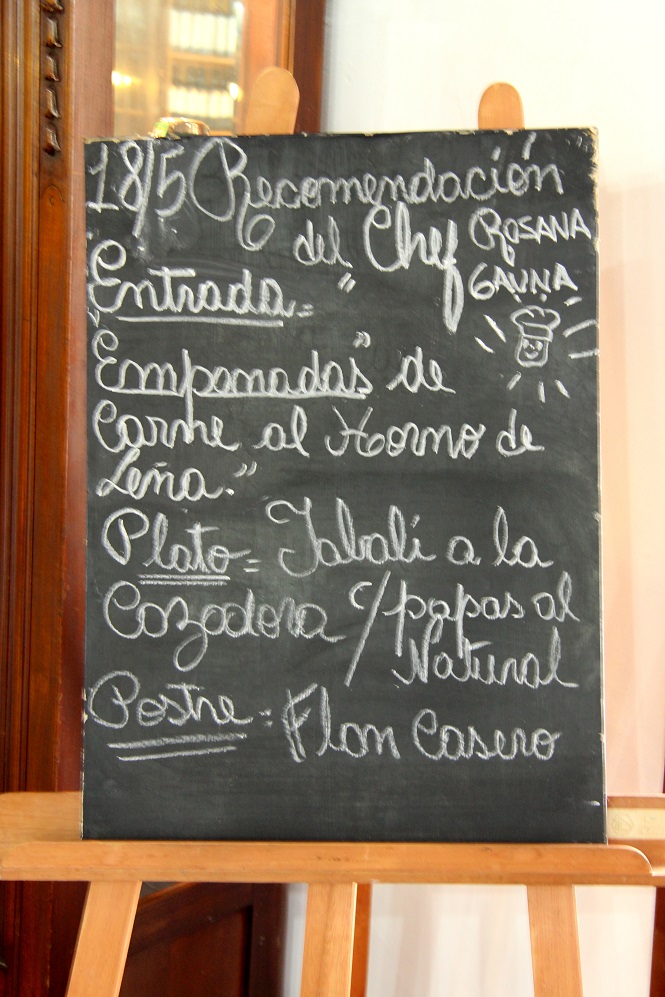 18/5 Recomendación
del Chef ROSANA
GAUNA
Entrada=
"Empanadas" de
Carne al Horno de
Leña."
Plato= Jabalí a la
Cazadora c/papas al
Natural
Postre: Flan Casero